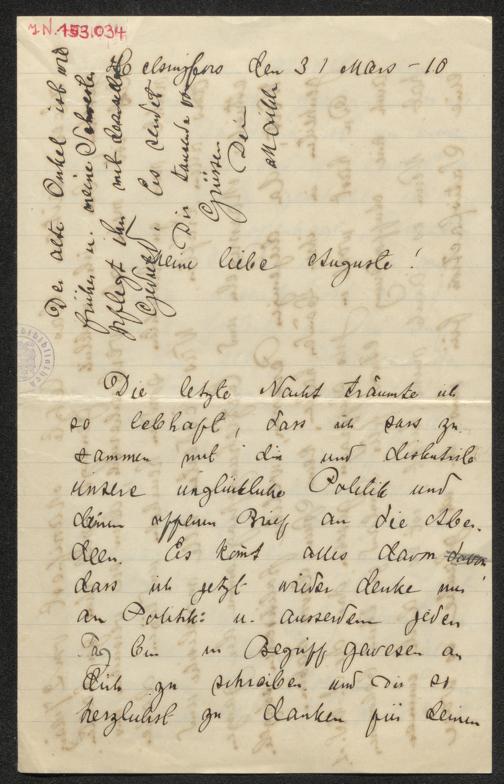 J.N. 153.034
Helsingfors den 31 Mars - 10
Meine liebe Auguste!
Die letzte Nacht träumte ich
so lebhaft, dass ich sass zu-
sammen mit dir und diskutirte
unsere unglückliche Politik und
deinen offenen Brief an die Aber-
deen. Es kom̄t alles davon davon
dass ich jetzt wieder denke nur
an Politik: u. ausserdem jeden
Tag bin in Begriff gewesen an
Dich zu schreiben und Dir so
herzlichst zu danken für deinen
Der alte Onkel ist wie
früher u. meine Schwester
pflegt ihn mit
Geduld. Es sendet
Dir tausende
Grüssen Dein
Maikki